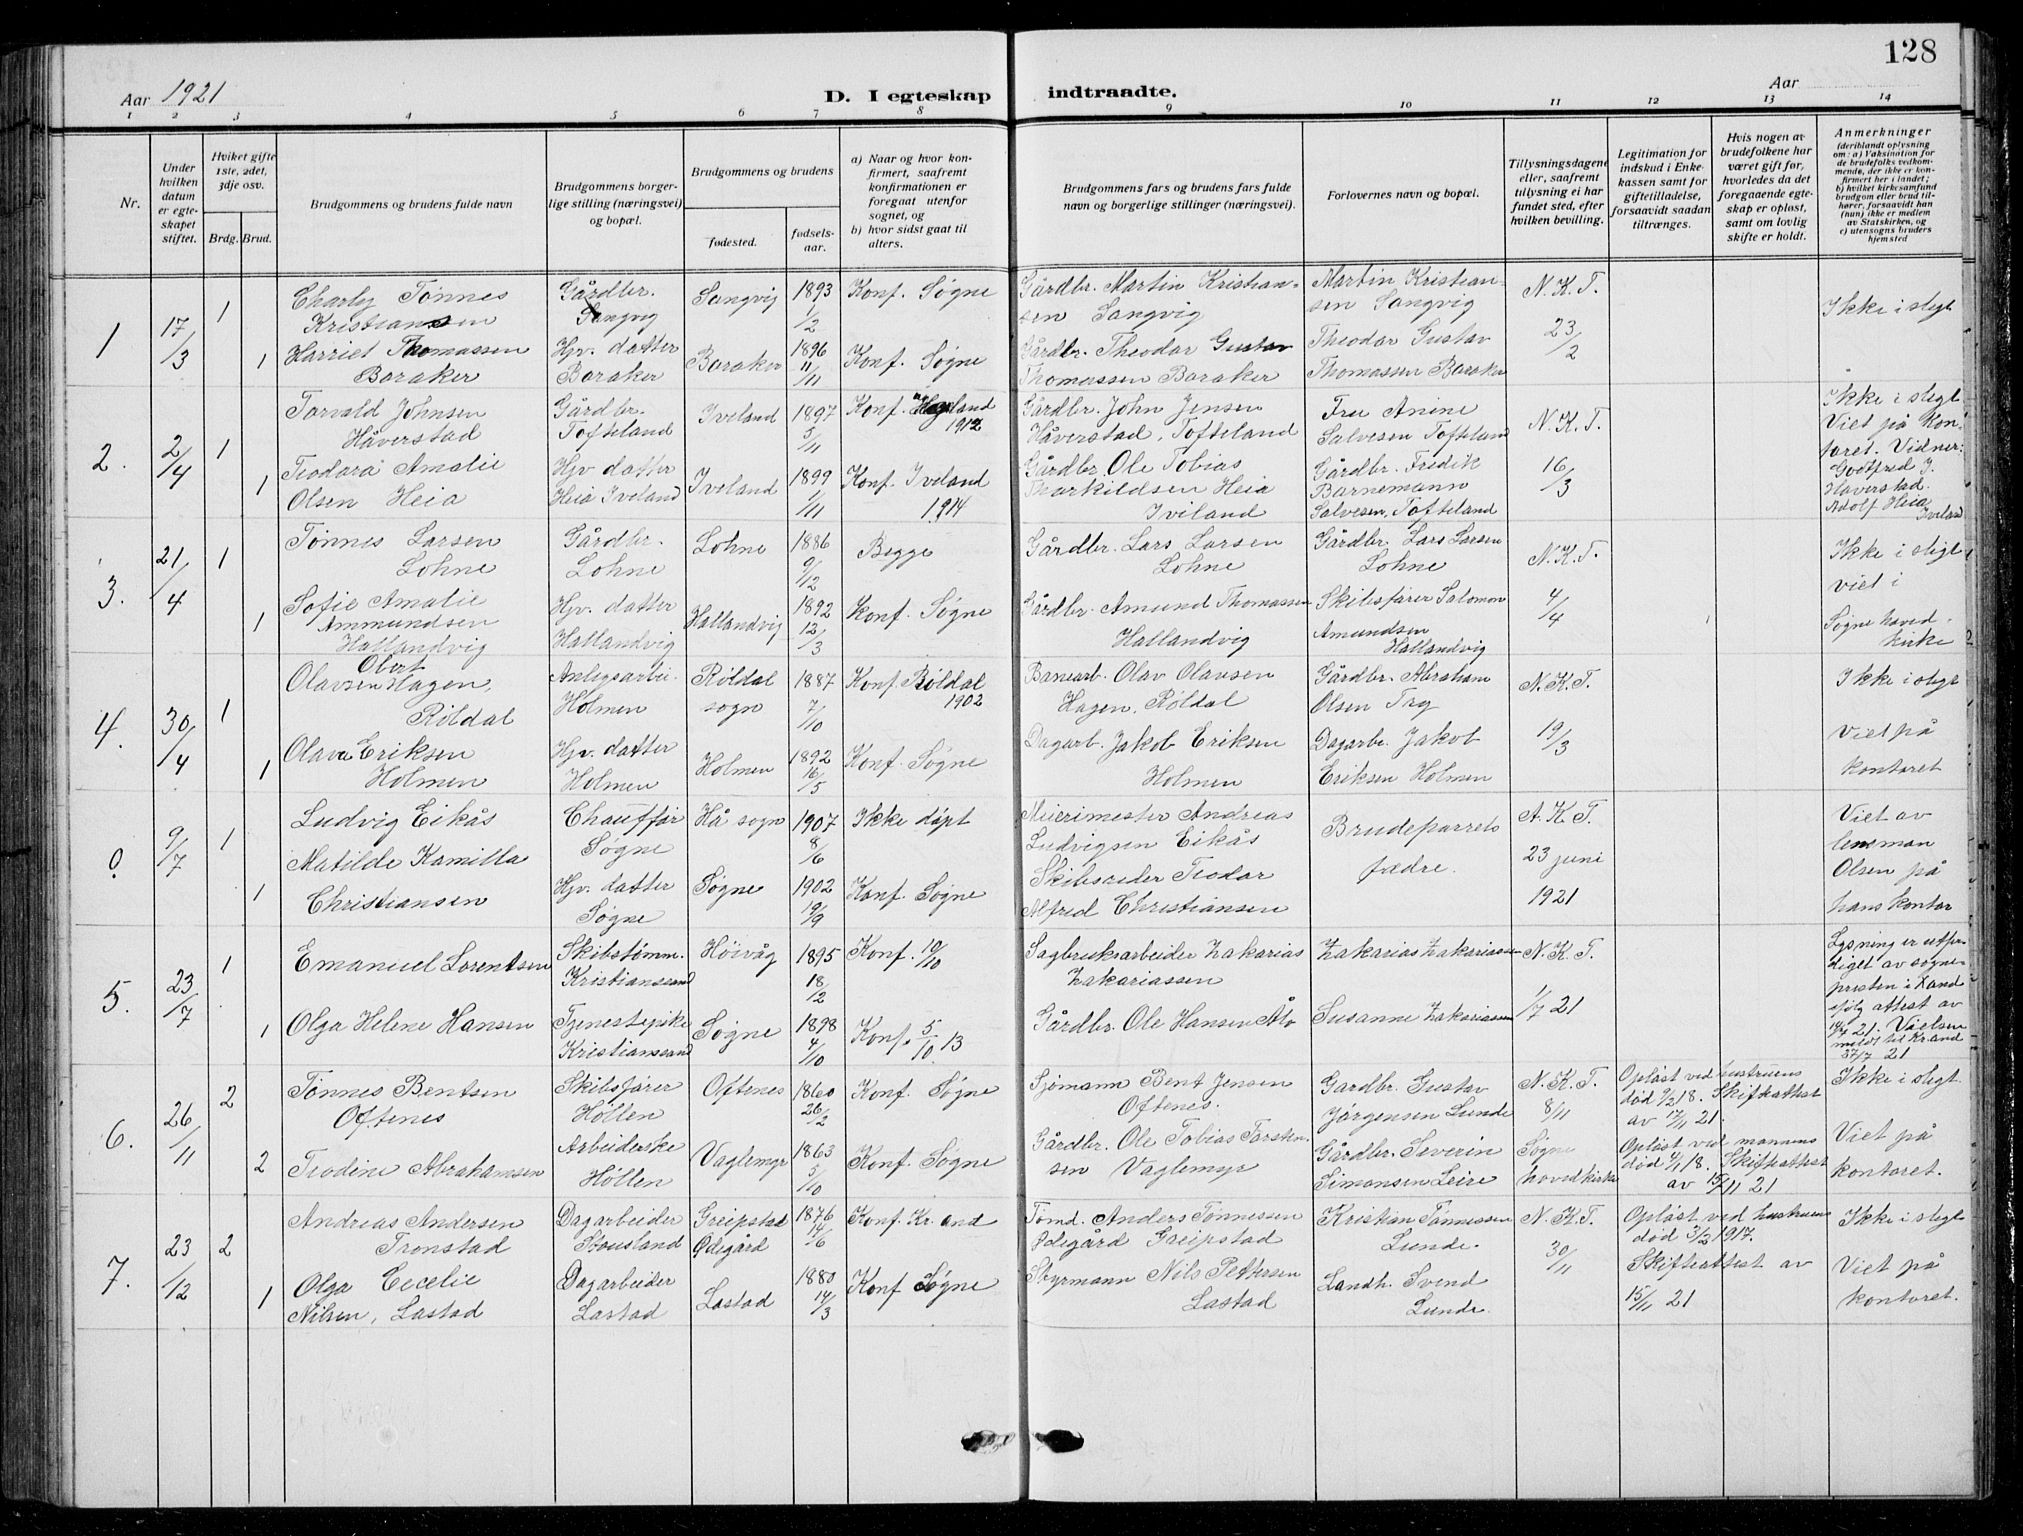 128
Aar 1921
D. I egteskap indtraadte.
Aar
1 2 3 4 5 6 7 8 9 10 11 12 13 14
Nr.
Under hvilken datum er egteskapet stiftet.
Hviket gifte 1ste, 2det, 3dje osv.
Brdg. Brud.
Brudgommens og brudens fulde navn
Brudgommens borgerlige stilling (næringsvei) og bopæl.
Brudgommens og brudens
fødested.
fødselsaar.
a) Naar og hvor konfirmert, saafremt konfirmationen er foregaat utenfor sognet, og
b) hvor sidst gaat til alters.
Brudgommens fars og brudens fars fulde navn og borgerlige stillinger (næringsvei).
Forlovernes navn og bopæl.
Tillysningsdagene eller, saafremt tillysning ei har fundet sted, efter hvilken bevilling.
Legitimation for indskud i Enkekassen samt for giftetilladelse, forsaavidt saadan tiltrænges.
Hvis nogen av brudefolkene har været gift før, hvorledes da det foregaaende egteskap er opløst, samt om lovlig skifte er holdt.
Anmerkninger (deriblandt oplysning om: a) Vaksination for de brudefolks vedkommende, der ikke er konfirmert her i landet; b) hvilket kirkesamfund brudgom eller brud tilhører, forsaavidt han (hun) ikke er medlem av Statskirken, og c) utensogns bruders hjemsted
1 17/3 1 Charly Tønnes Kristiansen Gårdbr. Sangvig Sangvig 1893 1/2 Konf. Søgne Gårdbr. Martin Kristiansen Sangvig Martin Kristiansen Sangvig N.K.T. 23/2 Ikke i slegt
1 Harriet Thomassen Boraker Hjv. datter Boraker Boraker 1896 11/11 Konf. Søgne Gårdbr. Theodor Gustav Thomassen Boraker Theodor Gustav Thomassen Boraker
2. 2/4 1 Torvald Johnsen Håverstad Gårdbr. Tofteland Iveland 1897 5/11 Konf. 1912 Gårdbr. John Jensen Håverstad, Tofteland Fru Anine Salvesen Tofteland N.K.T. 16/3 Ikke i slegt. Viet på Kontoret. Vidner: Godtfred J. Haverstad. Adolf Heia Iveland
1 Teodora Amalie Olsen Heia Hjv datter Heia Iveland Iveland 1899 1/11 Konf. Iveland 1914 Gårdbr. Ole Tobias Thorkildsen Heia Iveland Gårdbr. Fredik Barnemann Salvesen, Tofteland
3. 21/4 1 Tønnes Larsen Lohne Gårdbr. Lohne Lohne 1886 9/12 Begge Gårdbr. Lars Larsen Lohne Gårdbr. Lars Larsen Lohne N.K.T. 4/4 Ikke i slegt viet i Søgne hovedkirke
1 Sofie Amalie Ammundsen Hallandvig Hjv. datter Hallandvig Hallandvig 1892 12/3 konf. Søgne Gårdbr. Amund Thomassen Hallandvig Skibsfører Salomon Amundsen Hallandvig
4. 30/4 1 Obert Olavsen Hagen, Röldal Anlegsarbei. Holmen Röldal sogn 1887 7/10 Konf. Röldal 1902 Banearb. Olav Olavsen Hagen, Röldal Gårdbr. Abraham Olsen Try N.K.T. 19/3 Ikke i slegt Viet på kontoret
1 Olava Eriksen Holmen Hjv. datter Holmen Holmen 1892 16/5 Konf. Søgne Dagarb. Jakob Eriksen Holmen Dagarbr. Jakob Eriksen Holmen
0. 9/7 1 Ludvig Eikås Chauffør Sogne Hå sogn 1907 8/6 Ikke döpt Meierimester Andreas Ludvigsen Eikås Brudeparrets fædre. A.K.T. 23 juni 1921 Viet av lensman Olsen på hans kontor
1 Matilde Kamilla Christiansen Hjv. datter Søgne Søgne 1902 19/9 Konf. Søgne Skibsreder Teodor Alfred Christiansen
5. 23/7 1 Emanuel Lorentsen Skibstømm. Kristianssand Höivåg 1895 18/2 Konf. 10/10 Sagbruksarbeider Zakarias Zakariassen Zakarias Zakariassen N.K.T. 1/7 21 Lysning er utferdiget av sogneprsten i Land ifølg attest av 21. Vielsen meldt til Kr.and 21
1 Olga Helene Hansen Tjenestepike Kristianssand Søgne 1898 4/10 Konf. 5/10 13 Gårdbr. Ole Hansen Ålo Susanne Zakariassen
6. 26/11 2 Tønnes Bentsen Oftenes Skibsfører Höllen Oftenes 1860 26/2 Konf. Søgne Sjømann Bent Jensen Oftenes. Gardbr. Gustav Jørgensen Lunde N.K.T. 8/11 Søgne hovedkirke Opløst ved hustruens død 9/2 18. Skifteattest av 17/11 21. Ikke i slegt. Viet på kontoret.
2 Teodine Abrahamsen Arbeiderske Höllen Vaglemyr 1863 5/10 Konf. Søgne Gårdbr. Ole Tobias Torstensen Vaglemyr Gårdbr. Severin Simonsen Leire Opløst ved mannens død 4/1 18. Skifteattest av 15/11 21
7. 23/12 2 Andreas Andersen Tronstad Dagarbeider Stousland Greipstad Ødegård 1876 14/6 Konf. Kr.and Tømd. Anders Tønnessen Ødegård Greipstad Kristian Tønnessen Lunde. N.K.T. 30/11 Opløst ved hustruens død 3/2 1917. Skifteattest av 15/11 21 Ikke i slegt Viet på kontoret.
1 Olga Cecelie Nilsen, Lastad Dagarbeider Lastad Lastad 1880 14/3 Konf Søgne Styrmann Nils Pettersen Lastad Landh. Svend Lunde.